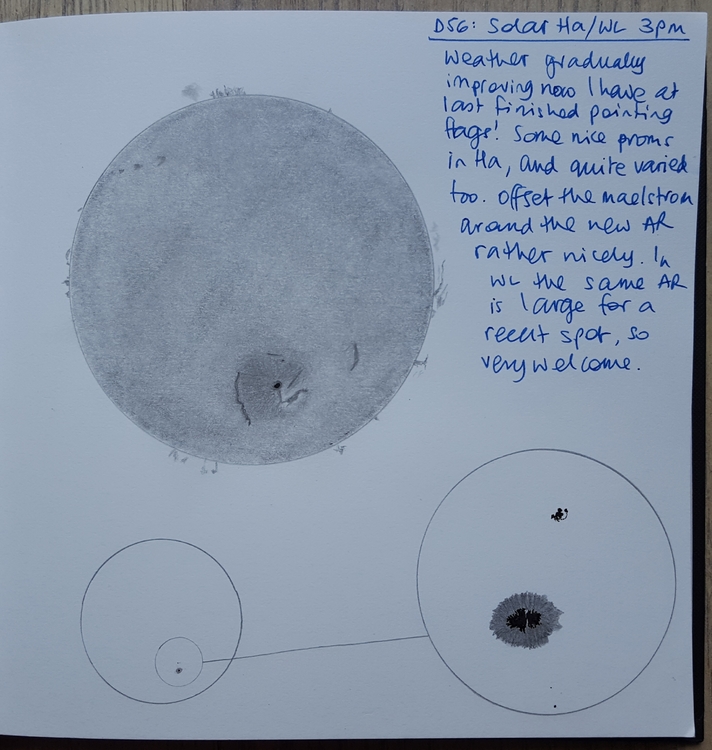 DSG: Solar Ha/WL 3pm
Weather gradually
improving now I have at
last finished painting
flags! Some nice proms
in Ha, and quite varied
too. Offset the maelstrom
around the new AR
rather nicely. In
WL the same AR
is large for a
recent spot, so
very welcome.